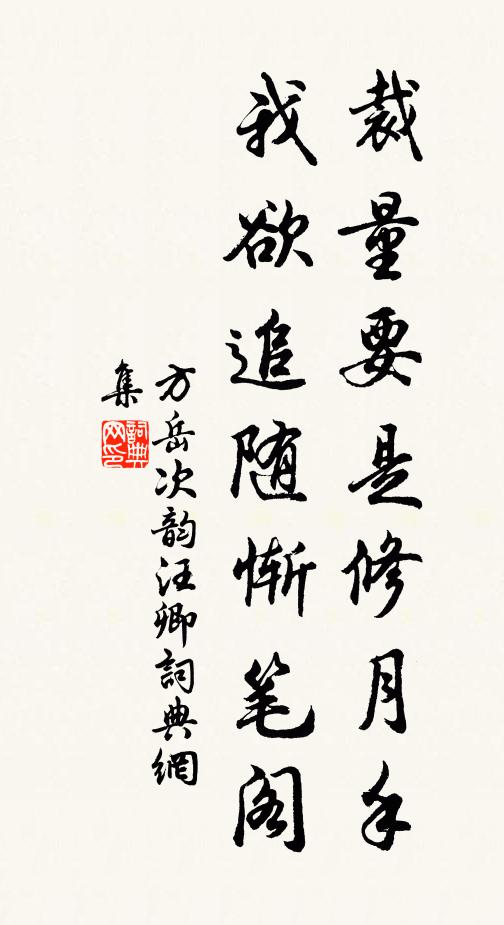 裁量要是修月手
我欲追随惭笔阁
方岳次韵汪卿詞典網
集
詞典网印